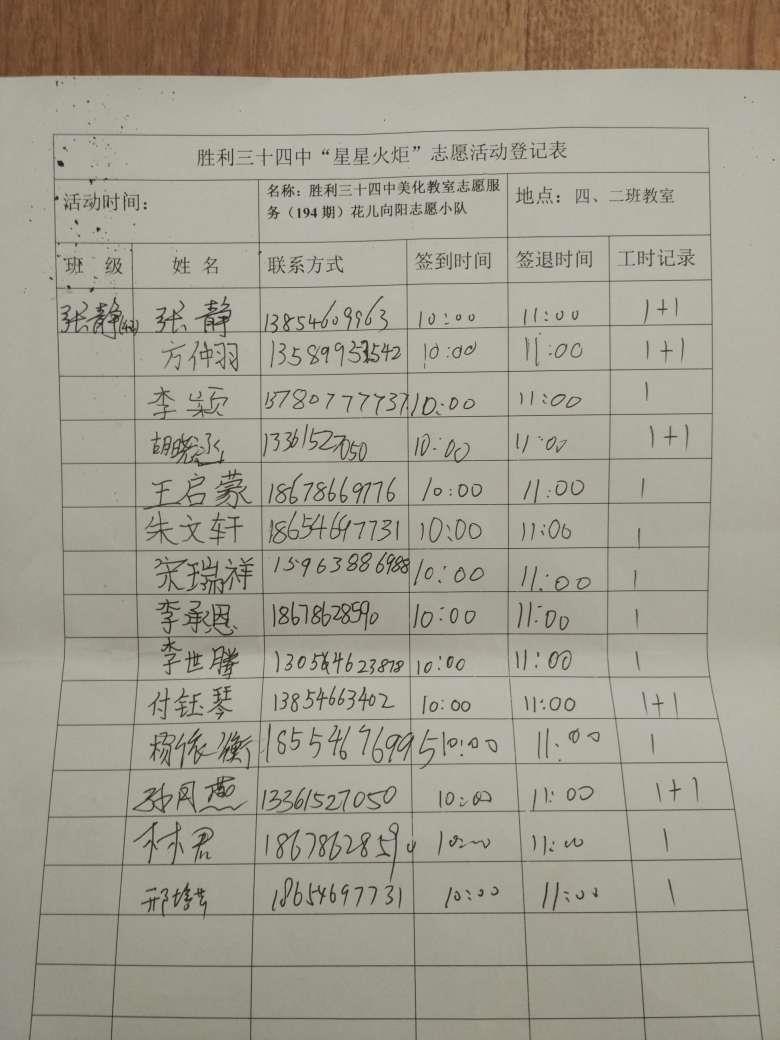 胜利三十四中“星星火炬”志愿活动登记表
活动时间： 名称：胜利三十四中美化教室志愿服务（194期）花儿向阳志愿小队 地点：四、二班教室
班 级 姓 名 联系方式 签到时间 签退时间 工时记录
张静 张静 13854609963 10:00 11:00 1+1
方仲羽 10:00 11:00 1+1
李颖 13780777737 10:00 11:00 1
13361527050 10:00 11:00 1+1
王启蒙 18678669776 10:00 11:00 1
朱文轩 18654697731 10:00 11:00 1
宋瑞祥 15963886988 10:00 11:00 1
李承恩 18678628590 10:00 11:00 1
李世腾 10:00 11:00 1
付钰琴 13854663402 10:00 11:00 1+1
杨依衡 18554676995 10:00 11:00 1
孙月燕 13361527050 10:00 11:00 1+1
林君 18678628590 10:00 11:00 1
18654697731 10:00 11:00 1